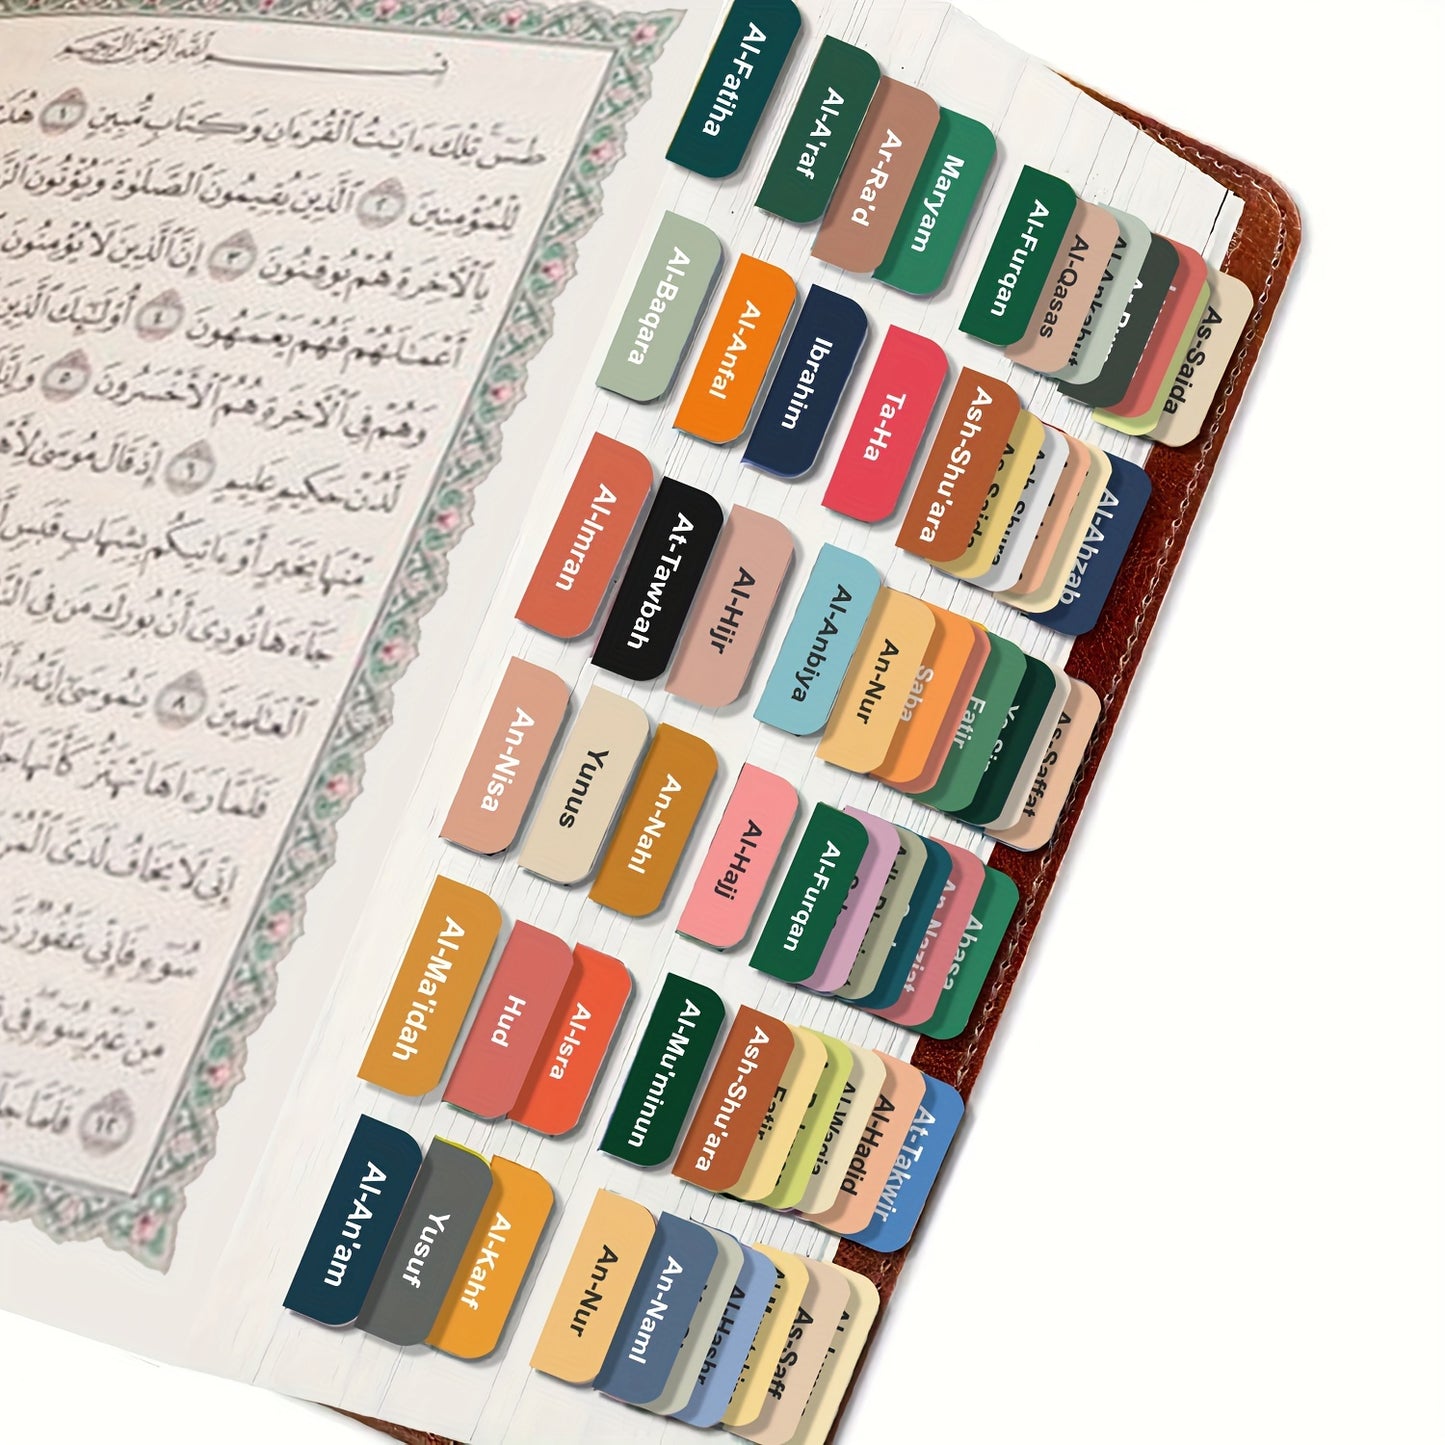 بِسْمِ ٱللَّهِ ٱلرَّحْمَٰنِ ٱلرَّحِيمِ
طسٓ تِلْكَ ءَايَٰتُ ٱلْقُرْءَانِ وَكِتَابٍ مُّبِينٍ ١
لِلْمُؤْمِنِينَ ٢ ٱلَّذِينَ يُقِيمُونَ ٱلصَّلَوٰةَ وَيُؤْتُونَ
بِٱلْءَاخِرَةِ هُمْ يُوقِنُونَ ٣ إِنَّ ٱلَّذِينَ لَا يُؤْمِنُونَ
أَعْمَٰلَهُمْ فَهُمْ يَعْمَهُونَ ٤ أُو۟لَٰٓئِكَ ٱلَّذِينَ
وَهُمْ فِى ٱلْءَاخِرَةِ هُمُ ٱلْأَخْسَرُونَ ٥
لَّدُنْ حَكِيمٍ عَلِيمٍ ٦ إِذْ قَالَ مُوسَىٰ
مِّنْهَا بِخَبَرٍ أَوْ ءَاتِيكُم بِشِهَابٍ قَبَسٍ
جَآءَهَا نُودِىَ أَنۢ بُورِكَ مَن فِى
ٱلْعَٰلَمِينَ ٨ يَٰمُوسَىٰٓ إِنَّهُۥٓ
فَلَمَّا رَءَاهَا تَهْتَزُّ كَأَنَّهَا
إِنِّى لَا يَخَافُ لَدَىَّ
سُوٓءٍ فَإِنِّى غَفُورٌ
مِنْ غَيْرِ سُوٓءٍ فِى
١٢ فَلَمَّا
Al-Fatiha
Al-A'raf
Ar-Ra'd
Maryam
Al-Furqan
Al-Qasas
Al-Ankabut
As-Sajda
Al-Baqara
Al-Anfal
Ibrahim
Ta-Ha
Ash-Shu'ara
Al-Ahzab
Al-Imran
At-Tawbah
Al-Hijr
Al-Anbiya
An-Nur
Saba
Fatir
Ya-Sin
As-Saffat
An-Nisa
Yunus
An-Nahl
Al-Hajj
Al-Furqan
An-Naziat
Abasa
Al-Ma'idah
Hud
Al-Isra
Al-Mu'minun
Ash-Shu'ara
Fatir
Al-Waqia
Al-Hadid
At-Takwir
Al-An'am
Yusuf
Al-Kahf
An-Nur
An-Naml
Al-Hashr
As-Saff